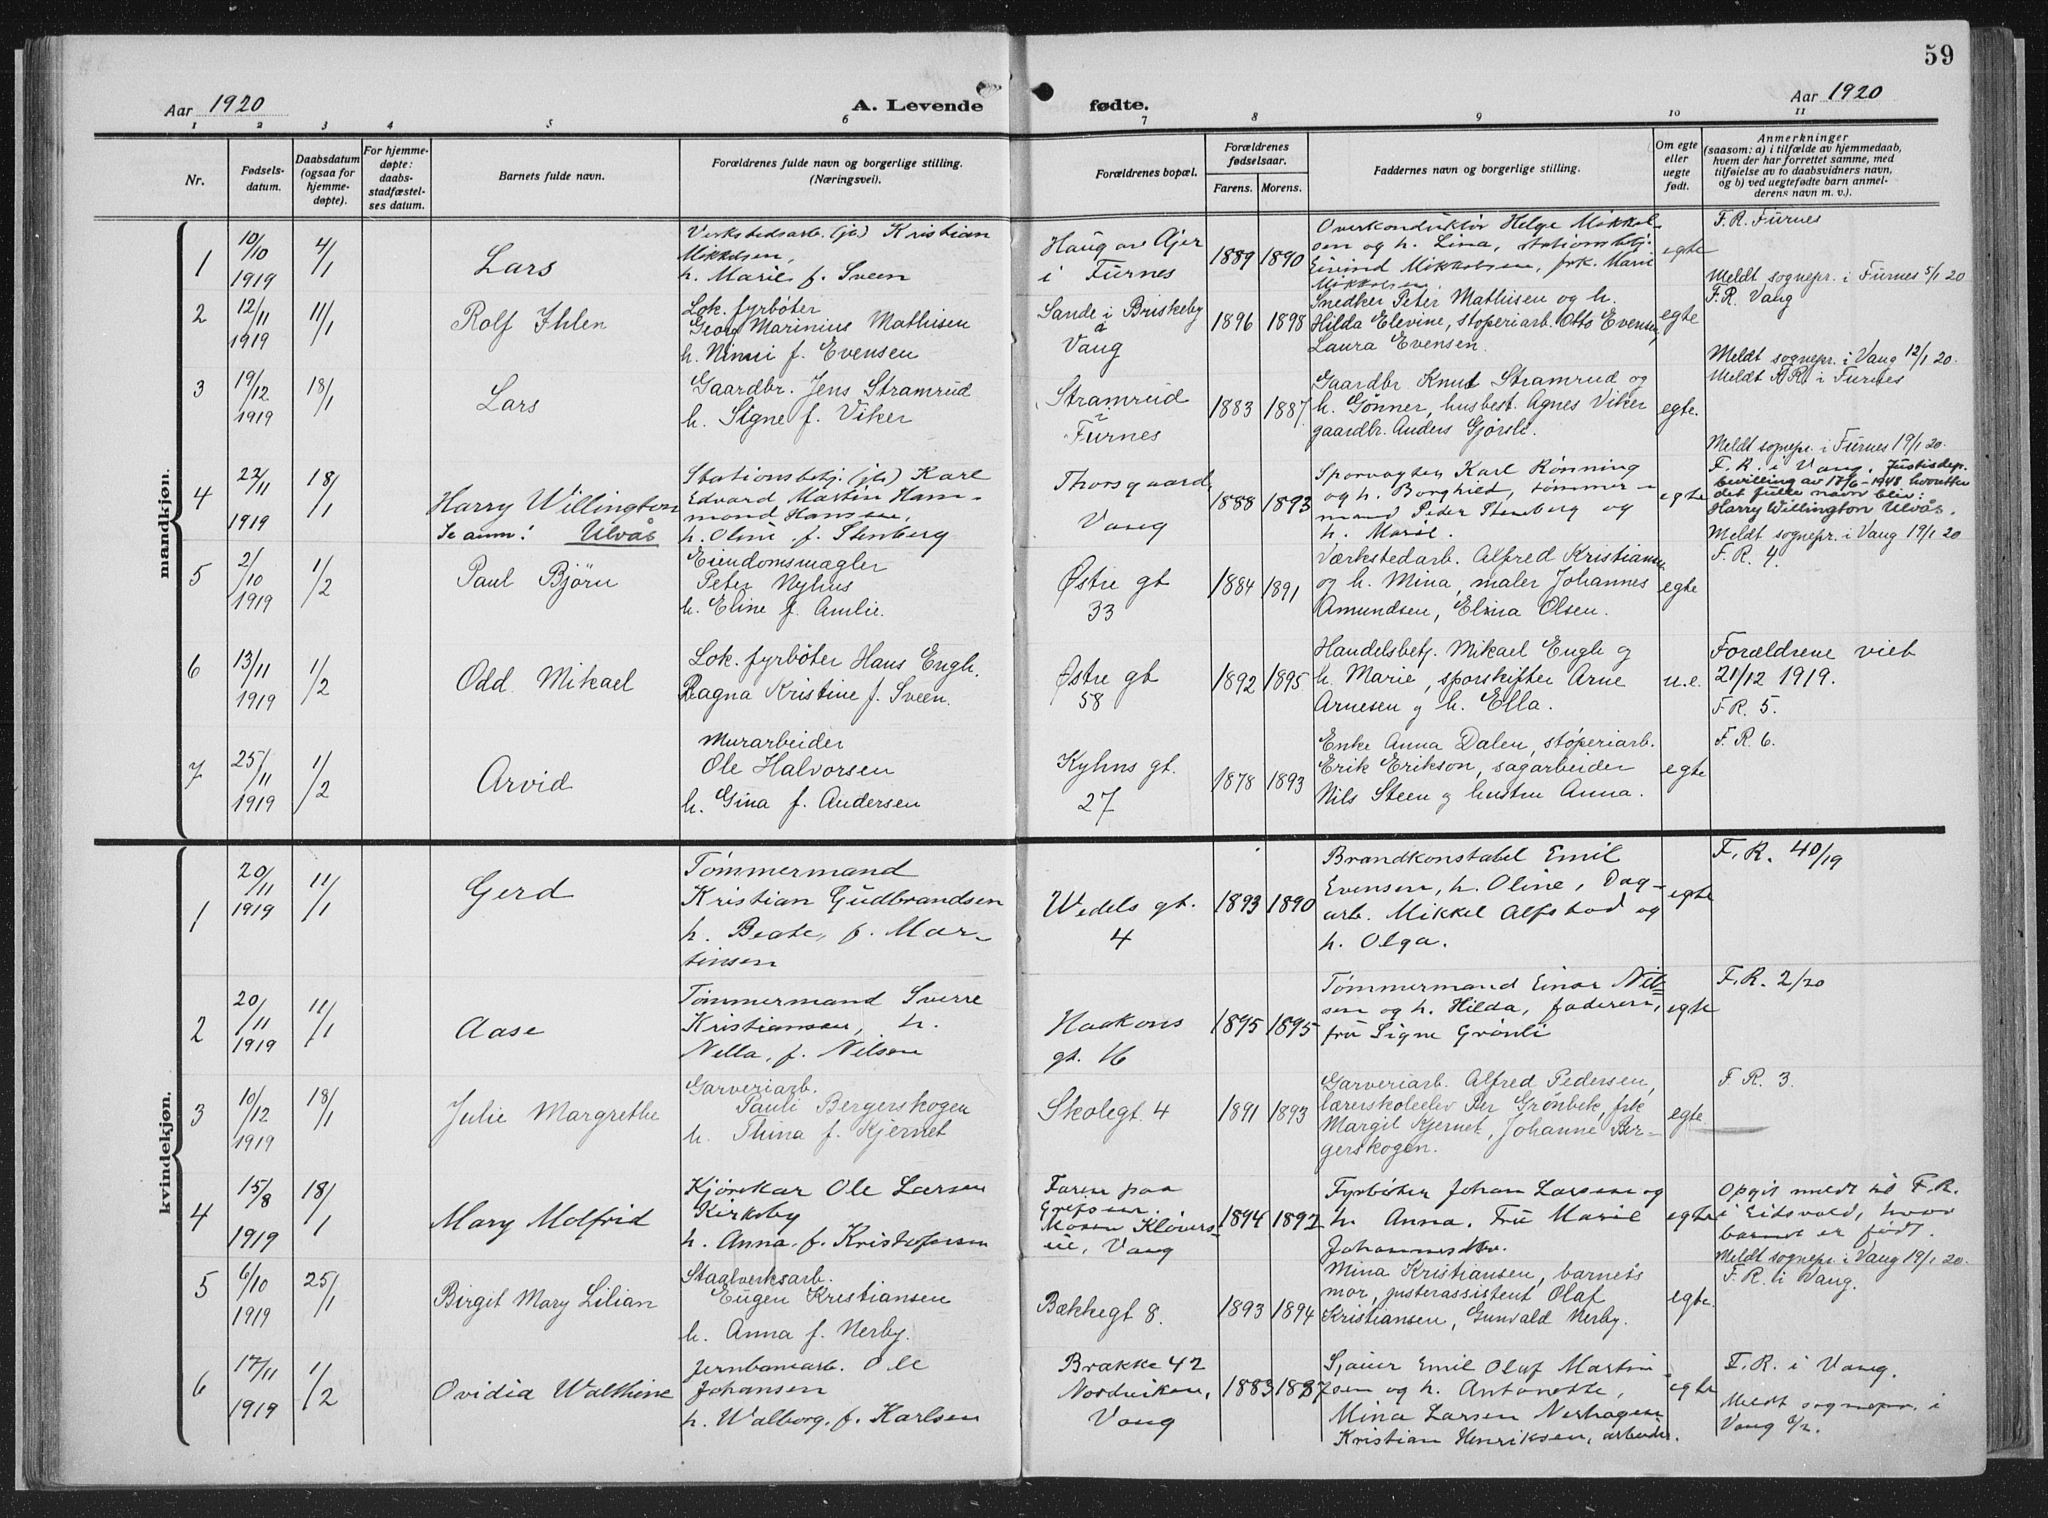 59
Aar 1920
A. Levende fødte.
Aar 1920
1 2 3 4 5 6 7 8 9 10 11
Nr.
Fødsels-
datum.
Daabsdatum
(ogsaa for
hjemme-
døpte).
For hjemme-
døpte:
daabs-
stadfæstel-
ses datum.
Barnets fulde navn.
Forældrenes fulde navn og borgerlige stilling.
(Næringsvei).
Forældrenes bopæl.
Forældrenes
fødselsaar.
Farens. Morens.
Faddernes navn og borgerlige stilling.
Om egte
eller
uegte
født.
Anmerkninger
(saasom: a) i tilfælde av hjemmedaab,
hvem der har forrettet samme, med
tilføielse av to daabsvidners navn,
og b) ved uegtefødte barn anmel-
derens navn m. v.).
mandkjøn.
1
10/10
1919
4/1
Lars
Verkstedsarb. (jb.) Kristian
Mikkelsen,
h. Marie f. Sveen
Haug av Ajer
i Furnes
1889 1890
Overkonduktør Helge Mikkel-
sen og h. Lina, stationsbetj.
Eivind Mikkelsen, frk. Marie
Mikkelsen.
egte
F. R. Furnes
Meldt sognepr. i Furnes 5/1 20
2
12/11
1919
11/1
Rolf Ihlen
Lok. fyrbøter
Georg Marinius Mathisen
h. Ninni f. Evensen
Sande i Briskeby
å
Vang
1896 1898
Snedker Peter Mathisen og h.
Hilda Elevine, støperiarb. Otto Evensen,
Laura Evensen.
egte
F. R. Vang
Meldt sognepr. i Vang 12/1 20.
3
19/12
1919
18/1
Lars
Gaardbr. Jens Stramrud
h. Signe f. Viker
Stramrud
i
Furnes
1883 1887
Gaardbr Knut Stramrud og
h. Gønner, husbest. Agnes Viker
gaardbr. Anders Gjørsli.
egte.
Meldt F.R. i Furnes
Meldt sognepr. i Furnes 19/1 20.
4
22/11
1919
18/1
Harry Willington
Se anm: Ulvås
Stationsbetj. (jb.) Karl
Edvard Martin Ham-
mond Hansen,
h. Oline f. Stenberg
Thorsgaard,
Vang
1888 1893
Sporvogter Karl Rønning
og h. Borghild, tømmer-
mand Peder Stenberg og
h. Marie.
egte
F. R. i Vang. Justisdep.
bevilling av 18/6-1948 hvoretter
det fulle navn blir:
Harry Willington Ulvås.
Meldt sognepr. i Vang 19/1 20
5
2/10
1919
1/2
Paul Bjørn
Eiendomsmægler
Peter Nyhus
h. Eline f. Amlie.
Østre gt
33
1884 1891
Værkstedarb. Alfred Kristiansen
og h. Mina, maler Johannes
Amundsen, Elina Olsen.
egte
F. R. 4.
6
13/11
1919
1/2
Odd Mikael
Lok. fyrbøter Hans Engh.
Ragna Kristine f. Sveen.
Østre gt
58
1892 1895
Handelsbetj. Mikael Engh og
h. Marie, sporskifter Arne
Arnesen og h. Ella.
u.e.
Forældrene viet
21/12 1919.
F. R. 5.
7
25/11
1919
1/2
Arvid
Murarbeider
Ole Halvorsen
h. Gina f. Andersen
Kyhns gt.
27
1878 1893
Enke Anna Dalen, støperiarb.
Erik Erikson, sagarbeider
Nils Steen og hustru Anna.
egte
F. R. 6.
kvindekjøn.
1
20/11
1919
11/1
Gerd
Tømmermand
Kristian Gudbrandsen
h. Beate, f. Mar-
tinsen
Wedels gt.
4
1893 1890
Brandkonstabel Emil
Evensen, h. Oline, Dag-
arb. Mikkel Alfstad og
h. Olga.
egte
F. R. 40/19
2
20/11
1919
11/1
Aase
Tømmermand Sverre
Kristiansen, h.
Nella, f. Nilsen
Haakons
gt. 16
1895 1895
Tømmermand Einar Nil-
sen og h. Hilda, faderen,
fru Signe Grønli
egte
F. R. 2/20
3
10/12
1919
18/1
Julie Margrethe
Garveriarb.
Pauli Bergerskogen
h. Thina f. Kjernet
Skolegt. 4
1891 1893
Garveriarb. Alfred Pedersen,
lærerskoleelev Per Grønbek, frk
Margit Kjernet, Johanne Ber-
gerskogen.
egte.
F. R. 3.
4
15/8
1919
18/1
Mary Molfrid
Kjørekar Ole Larsen
Kirkeby
h. Anna f. Kristofersen
Faren paa
Grefsen.
Moren Kløvers-
vie, Vang
1894 1892
Fyrbøter Johan Larsen og
h. Anna. Fru Marie
egte
Opgit meldt til F. R.
i Eidsvold, hvor
barnet er født.
Meldt sognepr. i Vang 19/1 20.
5
6/10
1919
25/1
Birgit Mary Lilian
Staalverksarb.
Eugen Kristiansen
h. Anna f. Nerby.
Bækkegt 8.
1893 1894
Mina Kristiansen, barnets
mor, justerassistent Olaf
Kristiansen, Gunvald Nerby.
egte.
F. R. i Vang.
6
17/11
1919
1/2
Ovidia Walthine
Jernbanearb. Ole
Johansen
h. Walborg, f. Karlsen
Brakke 42
Nordviken,
Vang
1883 1887
Sjauer Emil Olaf Martin-
sen og h. Antonette,
Mina Larsen Nerhagen
Kristian Henriksen, arbeider.
egte
F. R. i Vang.
Meldt sognepr. i
Vang